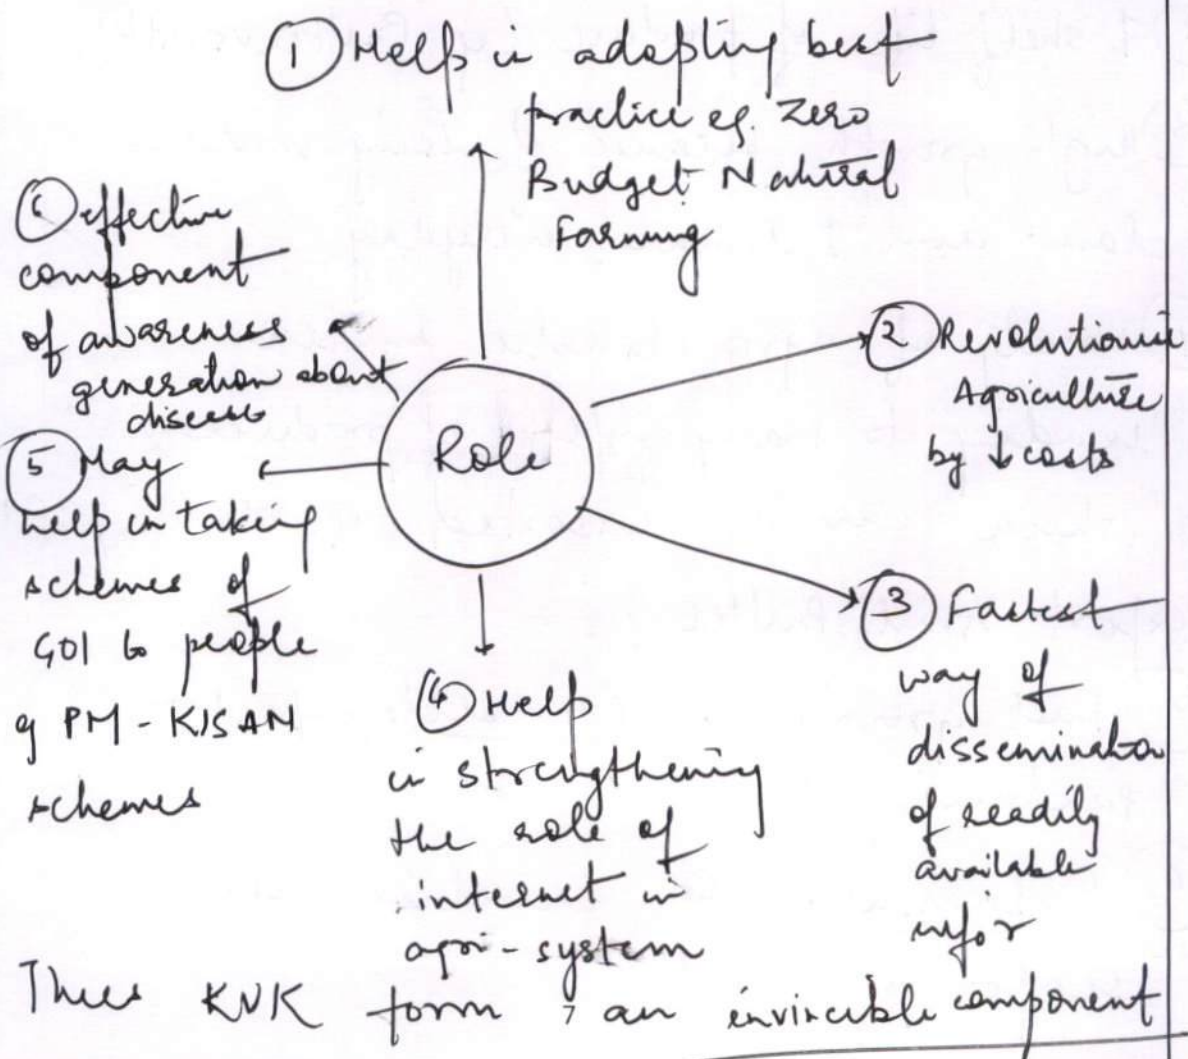 ① Help in adopting best
practice eg. Zero
Budget Natural
Farming
② Revolutionise
Agriculture
by ↓ costs
③ Fastest
way of
dissemination
of readily
available
infor
④ Help
in strengthening
the role of
internet in
agri-system
⑤ May
help in taking
schemes of
GOI to people
eg PM-KISAN
schemes
⑥ effective
component
of awareness
generation about
Role
Thus KVK form an invincible component